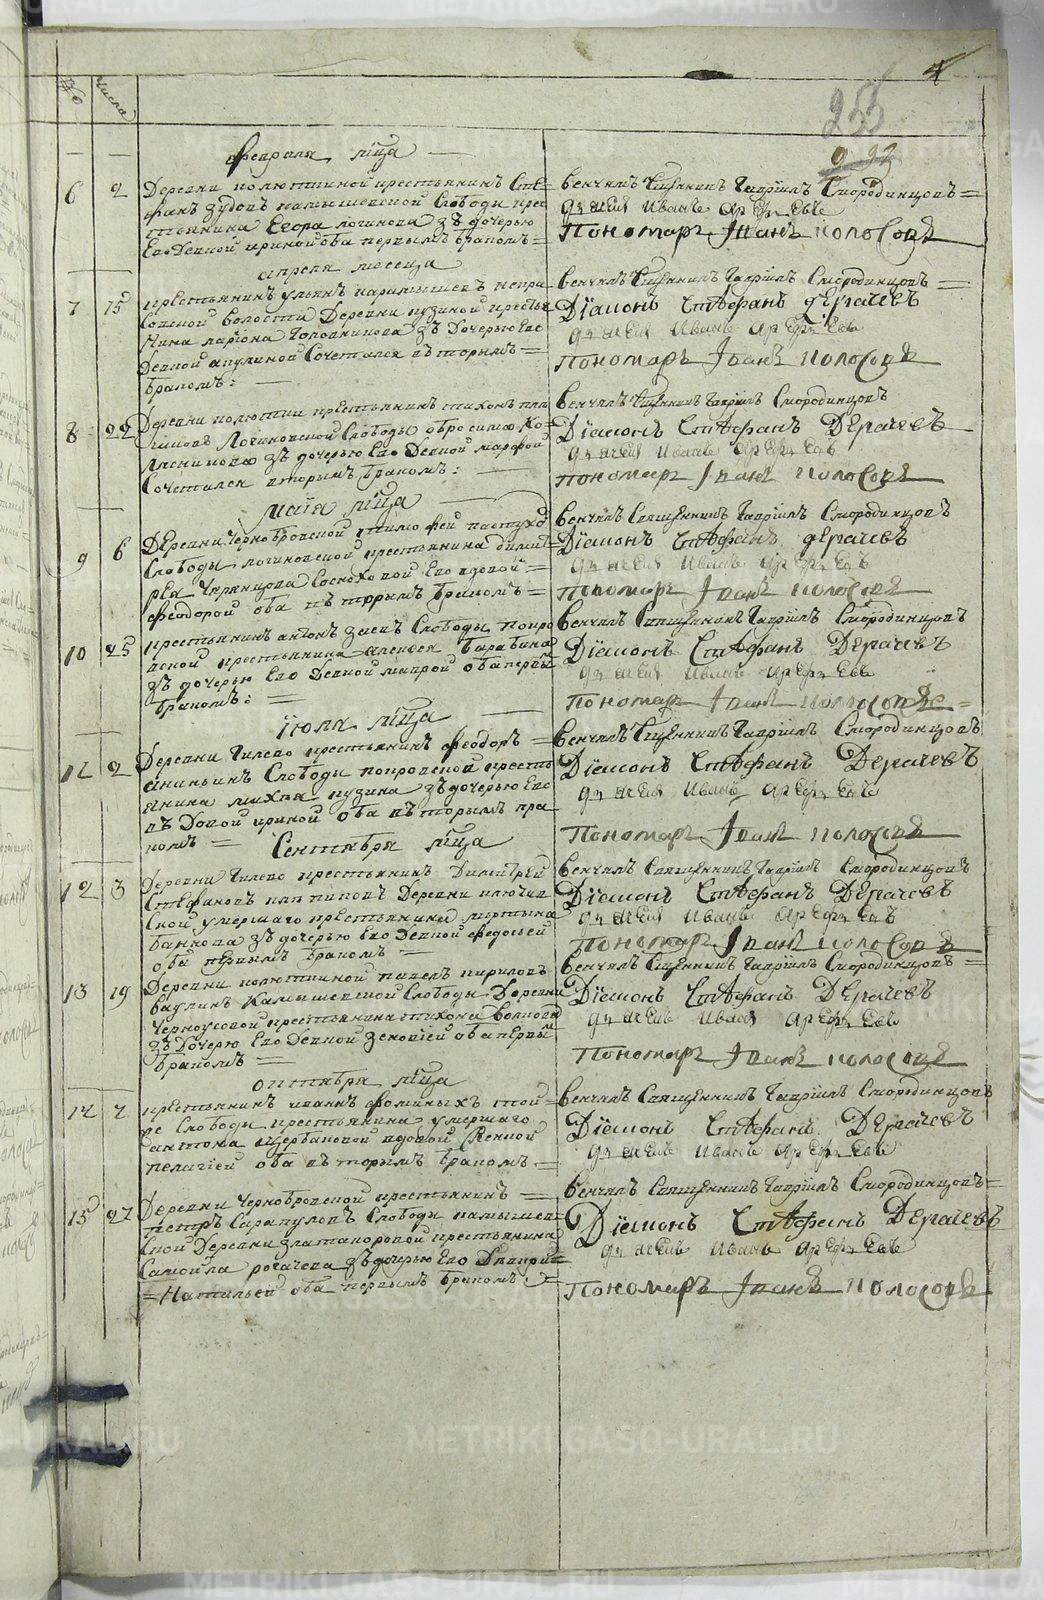 №
числа
255
февраля мĩца
6 2 Деревни полютиной крестьянинъ Сте=
фанъ зудовъ камышевской Слободы крес
тьянина Егора логинова зъ дочерью
Его Девкой ириной оба первымъ бракомъ=
Венчалъ Сщенникъ Гаврiилъ Смородинцовъ=
дьячекъ Иванъ Арефьевъ
Пономарь Iванъ колосовъ
апреля месеца
7 15 крестьянинъ ульянъ карамышевъ покро
вской Волости Деревни кузиной крестья
нина ларiона Головникова зъ Дочерью Ево
Девкой акулиной Сочетался вторымъ=
бракомъ:
Венчалъ Сщенникъ Гаврiилъ Смородинцовъ=
Дiаконъ Стефанъ Дерачевъ
дьячекъ Иванъ Арефьевъ
Пономарь Iванъ колосовъ
8 22 Деревни полютин крестьянинъ тихонъ
Логиновской Слободы
зъ дочерью Ево Девкой марфой
Сочетался вторымъ бракомъ:
Венчалъ Сщенникъ Гаврiилъ Смородинцовъ
Дiаконъ Стефанъ Дерачевъ
дьячекъ Иванъ Арефьевъ
пономарь Iванъ колосовъ
маiя мĩца
9 6 Деревни Чернобровской тимофей пастухо
Слободы логиновской крестьянина дмит=
рея вдовой=
феодорой оба вторымъ бракомъ=
Венчалъ Священникъ Гаврiилъ Смородинцовъ
Дiаконъ Стефанъ дерачевъ
дьячекъ Иванъ Арефьевъ
Пономарь Iванъ колосовъ
10 25 крестьянинъ антонъ заевъ Слободы покро
вской крестьянина алексея барабина
зъ дочерью Ево Девкой маврой оба первы
бракомъ:
Венчалъ Священникъ Гаврiилъ Смородинцовъ
Дiаконъ Стефанъ Дерачевъ
дьячекъ Иванъ Арефьевъ
пономарь Iванъ колосовъ
iюля мĩца
11 2 Деревни Гилево крестьянинъ феодоръ=
ананьинъ Слободы покровской кресть
янина михаи кузина зъ дочерью Ево
въ Довой ириной оба вторымъ бра
комъ=
Венчалъ Сщенникъ Гаврiилъ Смородинцовъ
Дiаконъ Стефанъ Дерачевъ
дьячекъ Иванъ Арефьевъ
Пономарь Iванъ колосовъ
Сентября мĩца
12 3 Деревни Гилево крестьянинъ Димитрей
Стефановъ Деревни ключев
ской умершаго крестьянина мартына
банкова зъ дочерью Ево Девкой федосьей
оба первымъ бракомъ=
Венчалъ Священникъ Гаврiилъ Смородинцовъ
Дiаконъ Стефанъ Дерачевъ
дьячекъ Иванъ Арефьевъ
Пономарь Iванъ колосовъ
13 19 Деревни полютиной павелъ кириловъ
ваулинъ Камышевской Слободы Деревни
Черноусовой крестьянина тихона волкова
зъ Дочерю Ево Девкой зеновiей оба первы
бракомъ=
Венчалъ Сщенникъ Гаврiилъ Смородинцовъ=
Дiаконъ Стефанъ Дерачевъ
дьячекъ Иванъ Арефьевъ
Пономарь Iванъ колосовъ
октября мĩца
14 7 крестьянинъ иванъ фоминыхъ той=
же Слободы крестьянина умершаго
антона щербаковой вдовой Женкой
пелагiей оба вторымъ бракомъ=
Венчалъ Священникъ Гаврiилъ Смородинцовъ
Дiаконъ Стефанъ Дерачевъ
дьячекъ Иванъ Арефьевъ
15 27 Деревни Чернобровской крестьянинъ=
петръ Сарапуловъ Слободы камышев=
ской Деревни златагоровой крестьянина
Самоила рогачева зъ дочерью Ево Девкой=
=Натальей оба первымъ бракомъ:=
Венчалъ Священникъ Гаврiилъ Смородинцовъ=
Дiаконъ Стефанъ Дерачевъ
дьячекъ Иванъ Арефьевъ
Пономарь Iванъ колосовъ
METRIKI.GASO-URAL.RU